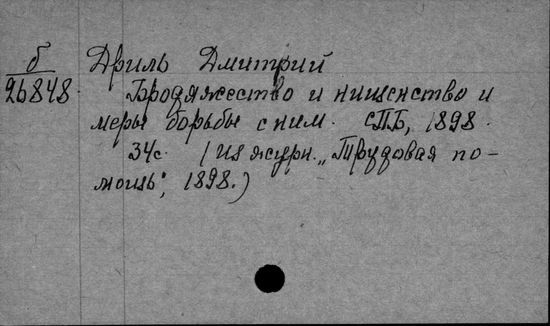 б
26848
Дриль Дмитрий
Бродяжество и нищенство и
меры борьбы с ним. СПБ, 1898.
34с. (Из журн. „Трудовая по-
мощь“, 1898.)